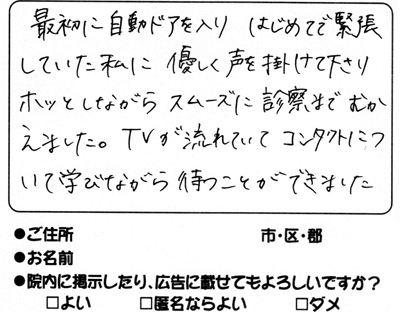 最初に自動ドアを入り はじめてで緊張
していた私に 優しく声を掛けて下さり
ホッとしながら スムーズに 診察まで むか
えました。TVが流れていて コンタクトにつ
いて学びながら 待つことができました
●ご住所 市・区・郡
●お名前
●院内に掲示したり、広告に載せてもよろしいですか？
□よい □匿名ならよい □ダメ